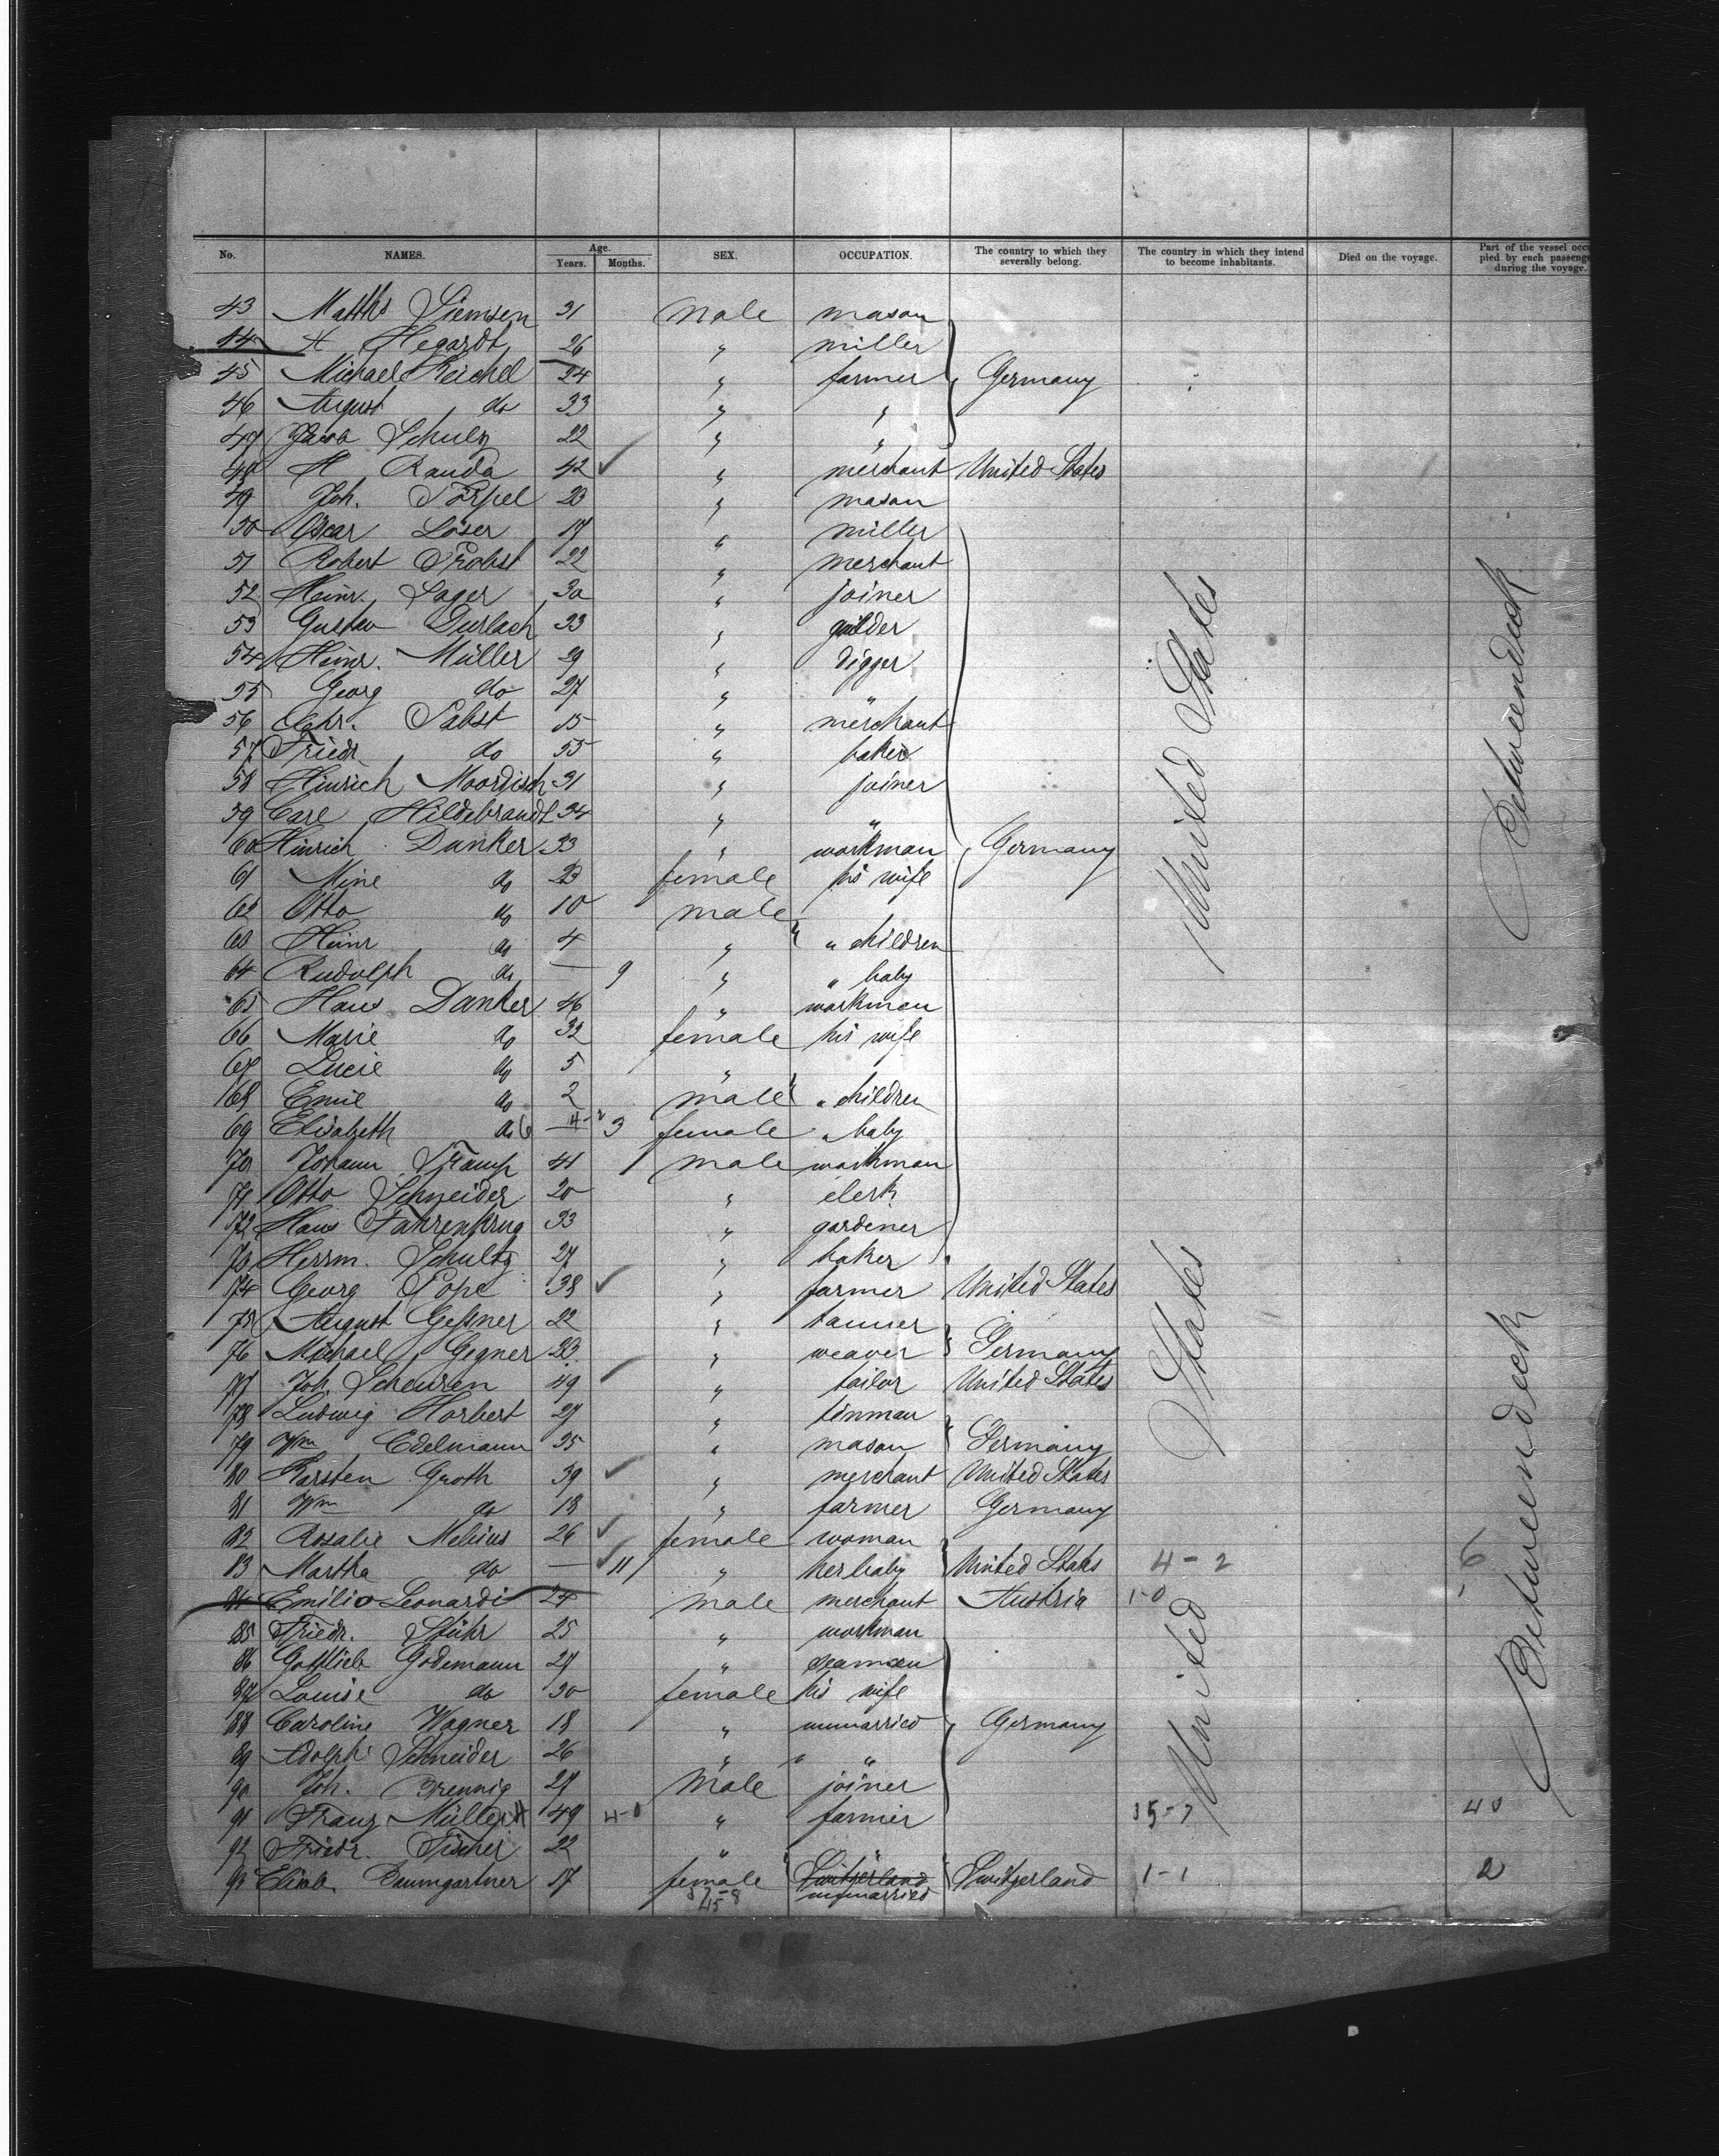 No. NAMES. Age. Years. Months. SEX. OCCUPATION. The country to which they severally belong. The country in which they intend to become inhabitants. Died on the voyage. Part of the vessel occu pied by each passeng during the voyage.
43 Matths Siemsen 31 male mason
44 A Hegardt 26 " miller
45 Michael Reichel 24 " farmer Germany
46 August do 33 " "
47 Jacob Schulz 22 " "
48 H Randa 42 " merchant United States
49 Joh. Törpel 23 " mason
50 Oscar Löser 17 " miller
51 Robert Probst 22 " merchant
52 Heinr. Sager 30 " joiner
53 Gustav Durlach 33 " guilder
54 Heinr. Müller 29 " digger
55 Georg do 27 " "
56 Chr. Pabst 15 " merchant
57 Friedr do 55 " baker
58 Hinrich Moordisch 31 " joiner
59 Carl Hildebrandt 34 " "
60 Hinrich Danker 33 " workman Germany
61 Mine do 23 female his wife
62 Otto do 10 male
63 Heinr do 4 " " children
64 Rudolph do — 9 " " baby
65 Hans Danker 46 " workman
66 Marie do 32 female his wife
67 Lucie do 5 "
68 Emil do 2 male " children
69 Elisabeth do 6 — 4-2 3 female " baby
70 Johann Stamp 41 male workman
71 Otto Schneider 20 " clerk
72 Hans Fahrenkrug 33 " gardener
73 Herrm. Schultz 27 " baker
74 Georg Pope 38 " farmer United States
75 August Geßner 22 " tanner
76 Michael Gegner 23 " weaver Germany
77 Joh. Scheuren 49 " tailor United States
78 Ludwig Horbert 27 " tinman
79 Wm Edelmann 35 " mason Germany
80 Karsten Groth 39 " merchant United States
81 Wm do 18 " farmer Germany
82 Rosalie Mebius 26 female woman
83 Martha do — 11 " her baby United States 4-2 6
84 Emilio Leonardi 24 male merchant Austria 1-0 1
85 Friedr. Stühr 25 " workman
86 Gottlieb Godemann 27 " seaman
87 Louise do 30 female his wife
88 Caroline Wagner 18 " unmarried Germany
89 Adolph Schneider 26 " "
90 Joh. Brennig 27 male joiner
91 Franz Müller 49 4-0 " farmer 35-7 40
92 Friedr. Fischer 22 " "
93 Elisab. Baumgartner 17 female Switzerland Switzerland 1-1 2
37-8 unmarried
45
United States
United States
Betweendeck
Betweendeck